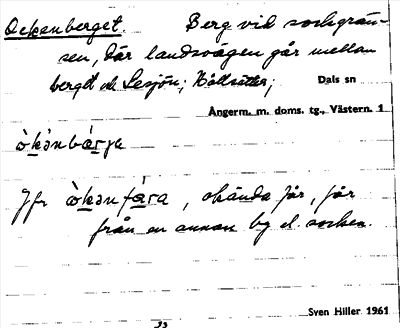 Ockenberget. Berg vid sockgrän-
sen, där landsvägen går mellan
berget och Lesjön;
Dals sn
Ångerm. m. doms. tg., Västern. 1
Jfr okända får, får
från en annan by el. socken.
Sven Hiller 1961